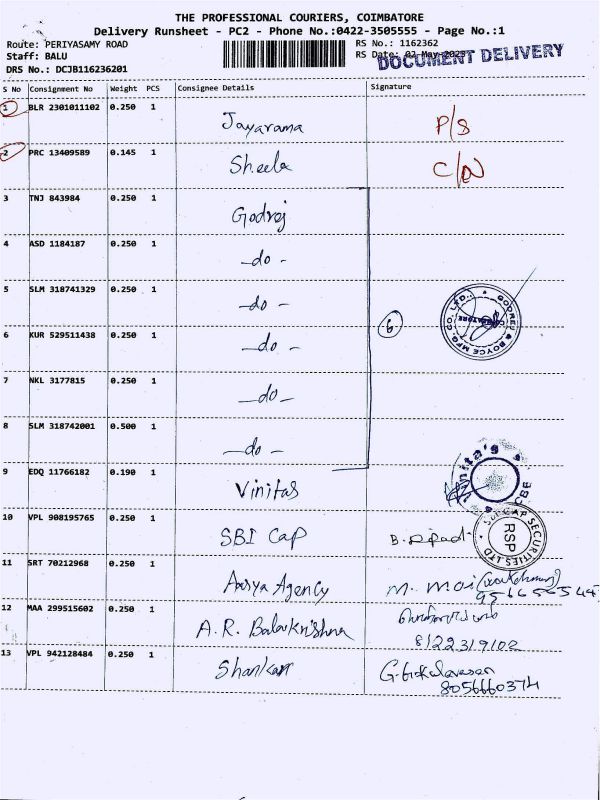 THE PROFESSIONAL COURIERS, COIMBATORE
Delivery Runsheet - PC2 - Phone No.:0422-3505555 - Page No.:1
Route: PERIYASAMY ROAD
RS No.: 1162362
Staff: BALU
RS Date: 02-May-2025
DOCUMENT DELIVERY
DRS No.: DCJB116236201
S No Consignment No Weight PCS Consignee Details Signature
1 BLR 2301011102 0.250 1 Jayarama P/S
2 PRC 13409589 0.145 1 Sheela C/N
3 TNJ 843984 0.250 1 Godrej
4 ASD 1184187 0.250 1 -do-
5 SLM 318741329 0.250 1 -do-
6 KUR 529511438 0.250 1 -do-
7 NKL 3177815 0.250 1 -do-
8 SLM 318742001 0.500 1 -do-
6
GODREJ & BOYCE MFG. CO. LTD.
9 EDQ 11766182 0.190 1 Vinitas
10 VPL 908195765 0.250 1 SBI Cap
SECURITIES LTD
RSP
11 SRT 70212968 0.250 1 Agency
12 MAA 299515602 0.250 1 A.R. Balakrishna
8122319102
13 VPL 942128484 0.250 1 Shankar
8056660374